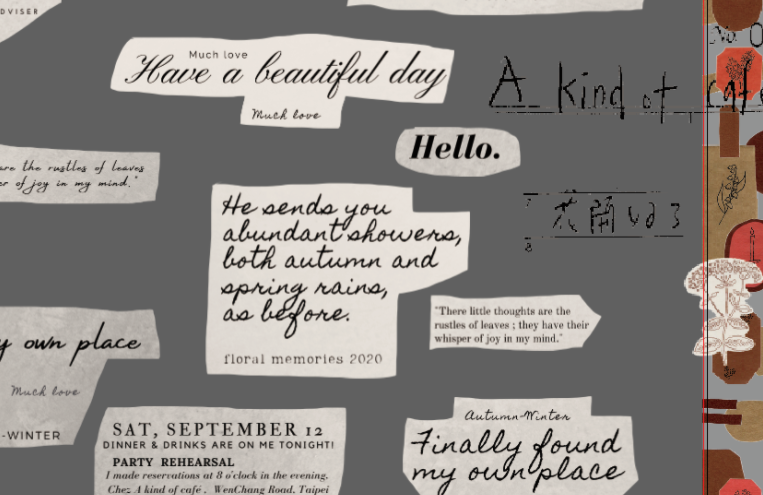 DVISER
Much love
Have a beautiful day
Much love
A kind of cafe
No
Hello.
are the rustles of leaves
er of joy in my mind."
7
8
He sends you
abundant showers,
both autumn and
spring rains,
as before.
floral memories 2020
"There little thoughts are the
rustles of leaves ; they have their
whisper of joy in my mind."
y own place
Much love
-WINTER
SAT, SEPTEMBER 12
DINNER & DRINKS ARE ON ME TONIGHT!
PARTY REHEARSAL
I made reservations at 8 o'clock in the evening.
Chez A kind of café . WenChang Road. Taipei
Autumn-Winter
Finally found
my own place